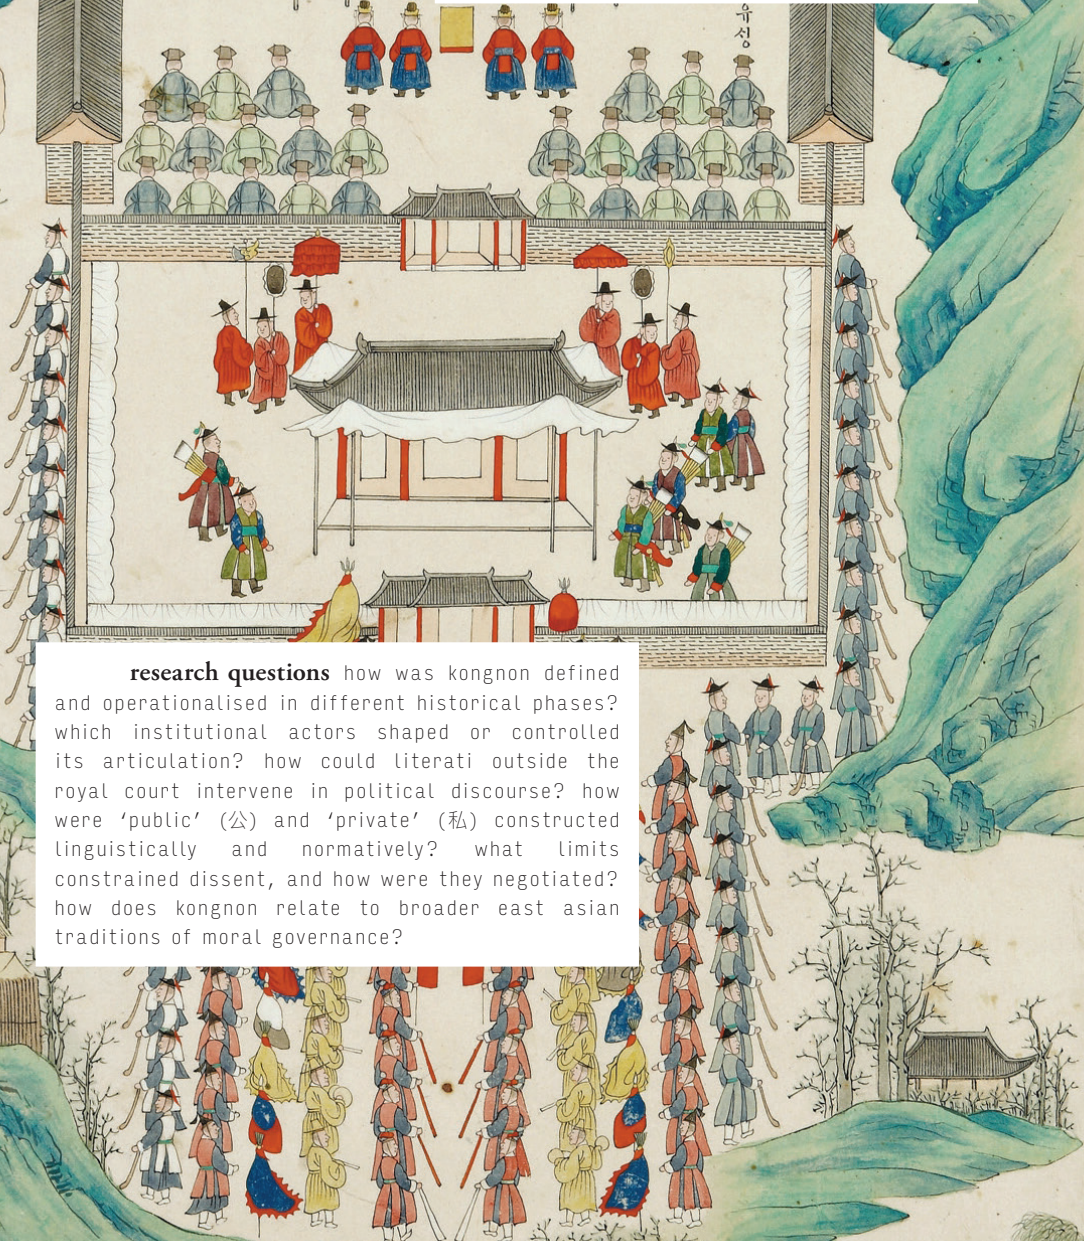 유
성
research questions how was kongnon defined
and operationalised in different historical phases?
which institutional actors shaped or controlled
its articulation? how could literati outside the
royal court intervene in political discourse? how
were ‘public’ (公) and ‘private’ (私) constructed
linguistically and normatively? what limits
constrained dissent, and how were they negotiated?
how does kongnon relate to broader east asian
traditions of moral governance?